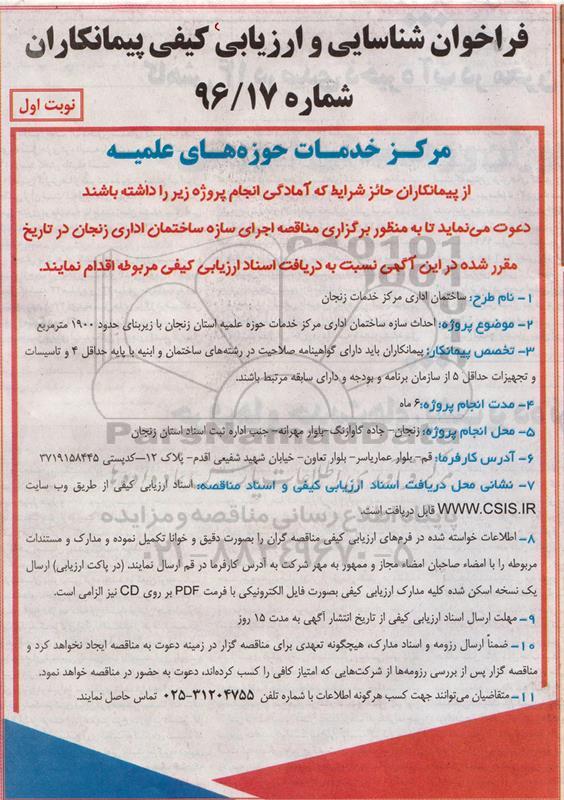 فراخوان شناسایی و ارزیابی کیفی پیمانکاران
شماره ۹۶/۱۷
نوبت اول
مرکز خدمات حوزه‌های علمیه
از پیمانکاران حائز شرایط که آمادگی انجام پروژه زیر را داشته باشند
دعوت می‌نماید تا به منظور برگزاری مناقصه اجرای سازه ساختمان اداری زنجان در تاریخ
مقرر شده در این آگهی نسبت به دریافت اسناد ارزیابی کیفی مربوطه اقدام نمایند.
۱- نام طرح: ساختمان اداری مرکز خدمات زنجان
۲- موضوع پروژه: احداث سازه ساختمان اداری مرکز خدمات حوزه علمیه استان زنجان با زیربنای حدود ۱۹۰۰ مترمربع
۳- تخصص پیمانکار: پیمانکاران باید دارای گواهینامه صلاحیت در رشته‌های ساختمان و ابنیه با پایه حداقل ۴ و تاسیسات
و تجهیزات حداقل ۵ از سازمان برنامه و بودجه و دارای سابقه مرتبط باشند.
۴- مدت انجام پروژه: ۶ ماه
۵- محل انجام پروژه: زنجان- جاده گاوازنگ-بلوار مهرانه- جنب اداره ثبت اسناد استان زنجان
۶- آدرس کارفرما: قم- بلوار عماریاسر- بلوار تعاون- خیابان شهید شفیعی اقدم- پلاک ۱۲-کدپستی ۳۷۱۹۱۵۸۴۴۵
۷- نشانی محل دریافت اسناد ارزیابی کیفی و اسناد مناقصه: اسناد ارزیابی کیفی از طریق وب سایت
WWW.CSIS.IR قابل دریافت است.
۸- اطلاعات خواسته شده در فرم‌های ارزیابی کیفی مناقصه گران را بصورت دقیق و خوانا تکمیل نموده و مدارک و مستندات
مربوطه را با امضاء صاحبان امضاء مجاز و ممهور به مهر شرکت به آدرس کارفرما در قم ارسال نمایند. (در پاکت ارزیابی) ارسال
یک نسخه اسکن شده کلیه مدارک ارزیابی کیفی بصورت فایل الکترونیکی با فرمت PDF بر روی CD نیز الزامی است.
۹- مهلت ارسال اسناد ارزیابی کیفی از تاریخ انتشار آگهی به مدت ۱۵ روز
۱۰- ضمناً ارسال رزومه و اسناد مدارک، هیچگونه تعهدی برای مناقصه گزار در زمینه دعوت به مناقصه ایجاد نخواهد کرد و
مناقصه گزار پس از بررسی رزومه‌ها از شرکت‌هایی که امتیاز کافی را کسب کرده‌اند، دعوت به حضور در مناقصه خواهد نمود.
۱۱- متقاضیان می‌توانند جهت کسب هرگونه اطلاعات با شماره تلفن ۳۱۲۰۴۷۵۵-۰۲۵ تماس حاصل نمایند.